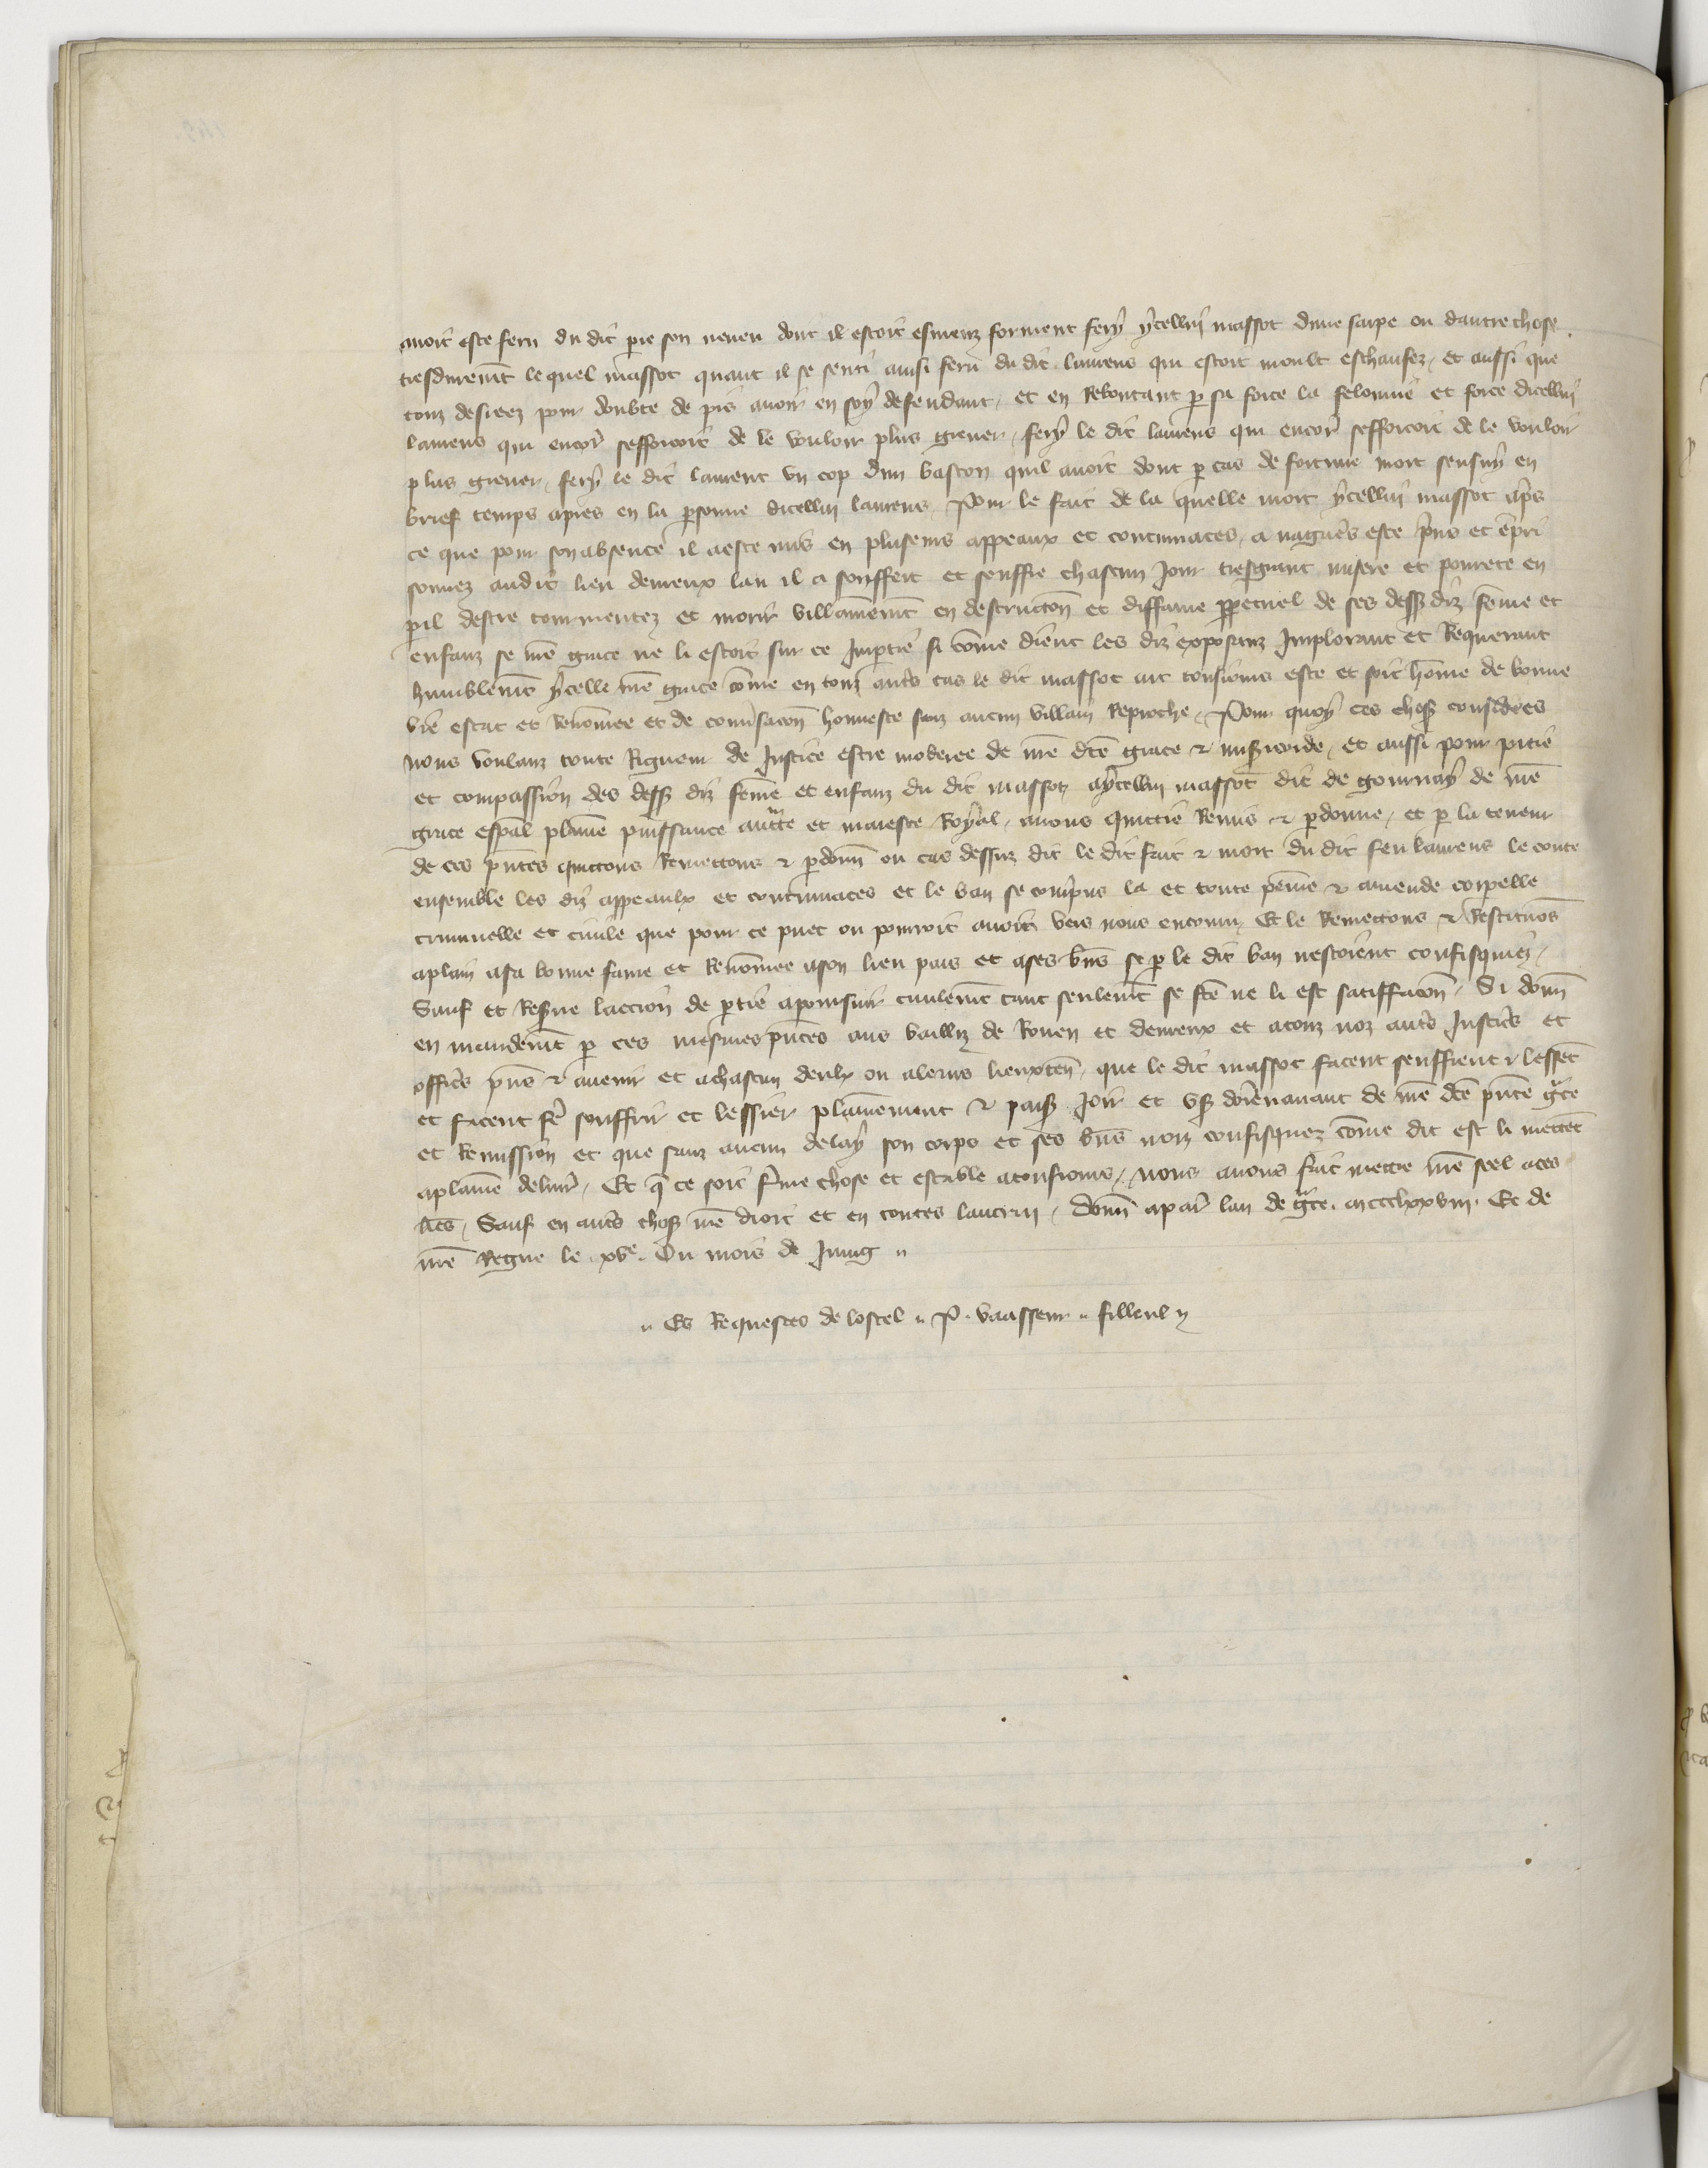 avoit este feru du dit pie son neveu dont il estoit esmeuz forment fery ycellui massot dune sarpe ou dautre chose
tresdurem̃t lequel massot quant il se senti ainsi feru du dit laurens qui estoit moult eschaufez, et aussi que
touz desirez pour doubte de pis avoir en soy defendant, et en Reboutant p sa force la felonnie et force dicellui
laurens qui encor̃ sefforcoit de le vouloir plus grever, fery le dit laurens qui encor̃ sefforcoit de le vouloir
plus grever, fery le dit laurent un cop dun baston quil avoit dont p cas de fortune mort sensuy en
brief temps apres en la psonne dicellui laurens, Pour le fait de la quelle mort ycellui massot ap̃s
ce que pour son absence il a este mis en pluseurs appeaux et contumaces, a nagueres este p̃ns et emp̃ri
sonnez audit lieu devreux lau il a souffert et seuffre chascun jour tresgrant misere et povrete en
pil destre tourmentez et morir villainem̃t en destruct̃on et diffame ppetuel de ses dess diz fem̃e et
enfanz se nr̃e grace ne li estoit sur ce Impartie si com̃e dient les diz exposanz Implorant et Requerant
humblem̃t ycelle nr̃e grace com̃e en touz autr̃s cas le dit massot ait tousiours este et soit hom̃e de bonne
vie estat et Renom̃ee et de conṽsac̃on honneste sanz aucun villain Reproche, Pour quoy ces chos̃ consider̃es
nous voulanz toute Rigueur de Justice estre moderee de nr̃e dc̃e grace & mis̃icorde, et aussi pour pitie
et compassion des dess diz fem̃e et enfanz du dit massot, aycellui massot dit de gournay de nr̃e
grace esp̃al plain̄e puissance auct̃te et maieste Royal, avons quittie Remis & pdonne, et p la teneur
de ces p̃ntes quittons Remettons & pdon̄ ou cas dessus dit le dit fait & mort du dit feu laurens le conte
ensemble les diz appeaulx et contumaces et le ban se comp̃ns la et toute pein̄e & amende corpelle
criminelle et civile que pour ce puet ou pourroit avoir vers nous encouru, Et le Remettons & Restituõs
aplain asa bonne fame et Renom̃ee ason lieu pais et ases biens se p le dit ban nestoient confisquiez,
Sauf et Reserve laccion de ptie apoursuir civilem̃t tant seulem̃t se fc̃e ne li est satiffac̃on, Si don̄
en mandem̃t p ces mesmes p̃ntes aus bailliz de Rouen et devreux et atouz noz autr̃s Justic̃s et
offic̃s p̃ns & avenir et achascun deulx ou aleurs lieuxten̄, que le dit massot facent seuffrent & lessẽt
et facent fẽ souffrir et lessier plainement & paisib̃ Joir et us̃ dorẽnavant de nr̃e dc̃e p̃nte gr̃ce
et Remission et que sanz aucun delay son corps et ses biens non confisquez com̃e dit est li mettẽt
aplain̄e delivr̃, Et q̃ ce soit fẽme chose et estable atousiours, nous avons fait mettre nr̃e seel aces
lr̃es, Sauf en autr̃s chos̃ nr̃e droit et en toutes lautrui, Don̄ apar̃ lan de gr̃ce. mccclxxviii. Et de
nr̃e Regne le xve. Ou mois de Juing
Es Requestes de lostel P. vaasseur fillleul